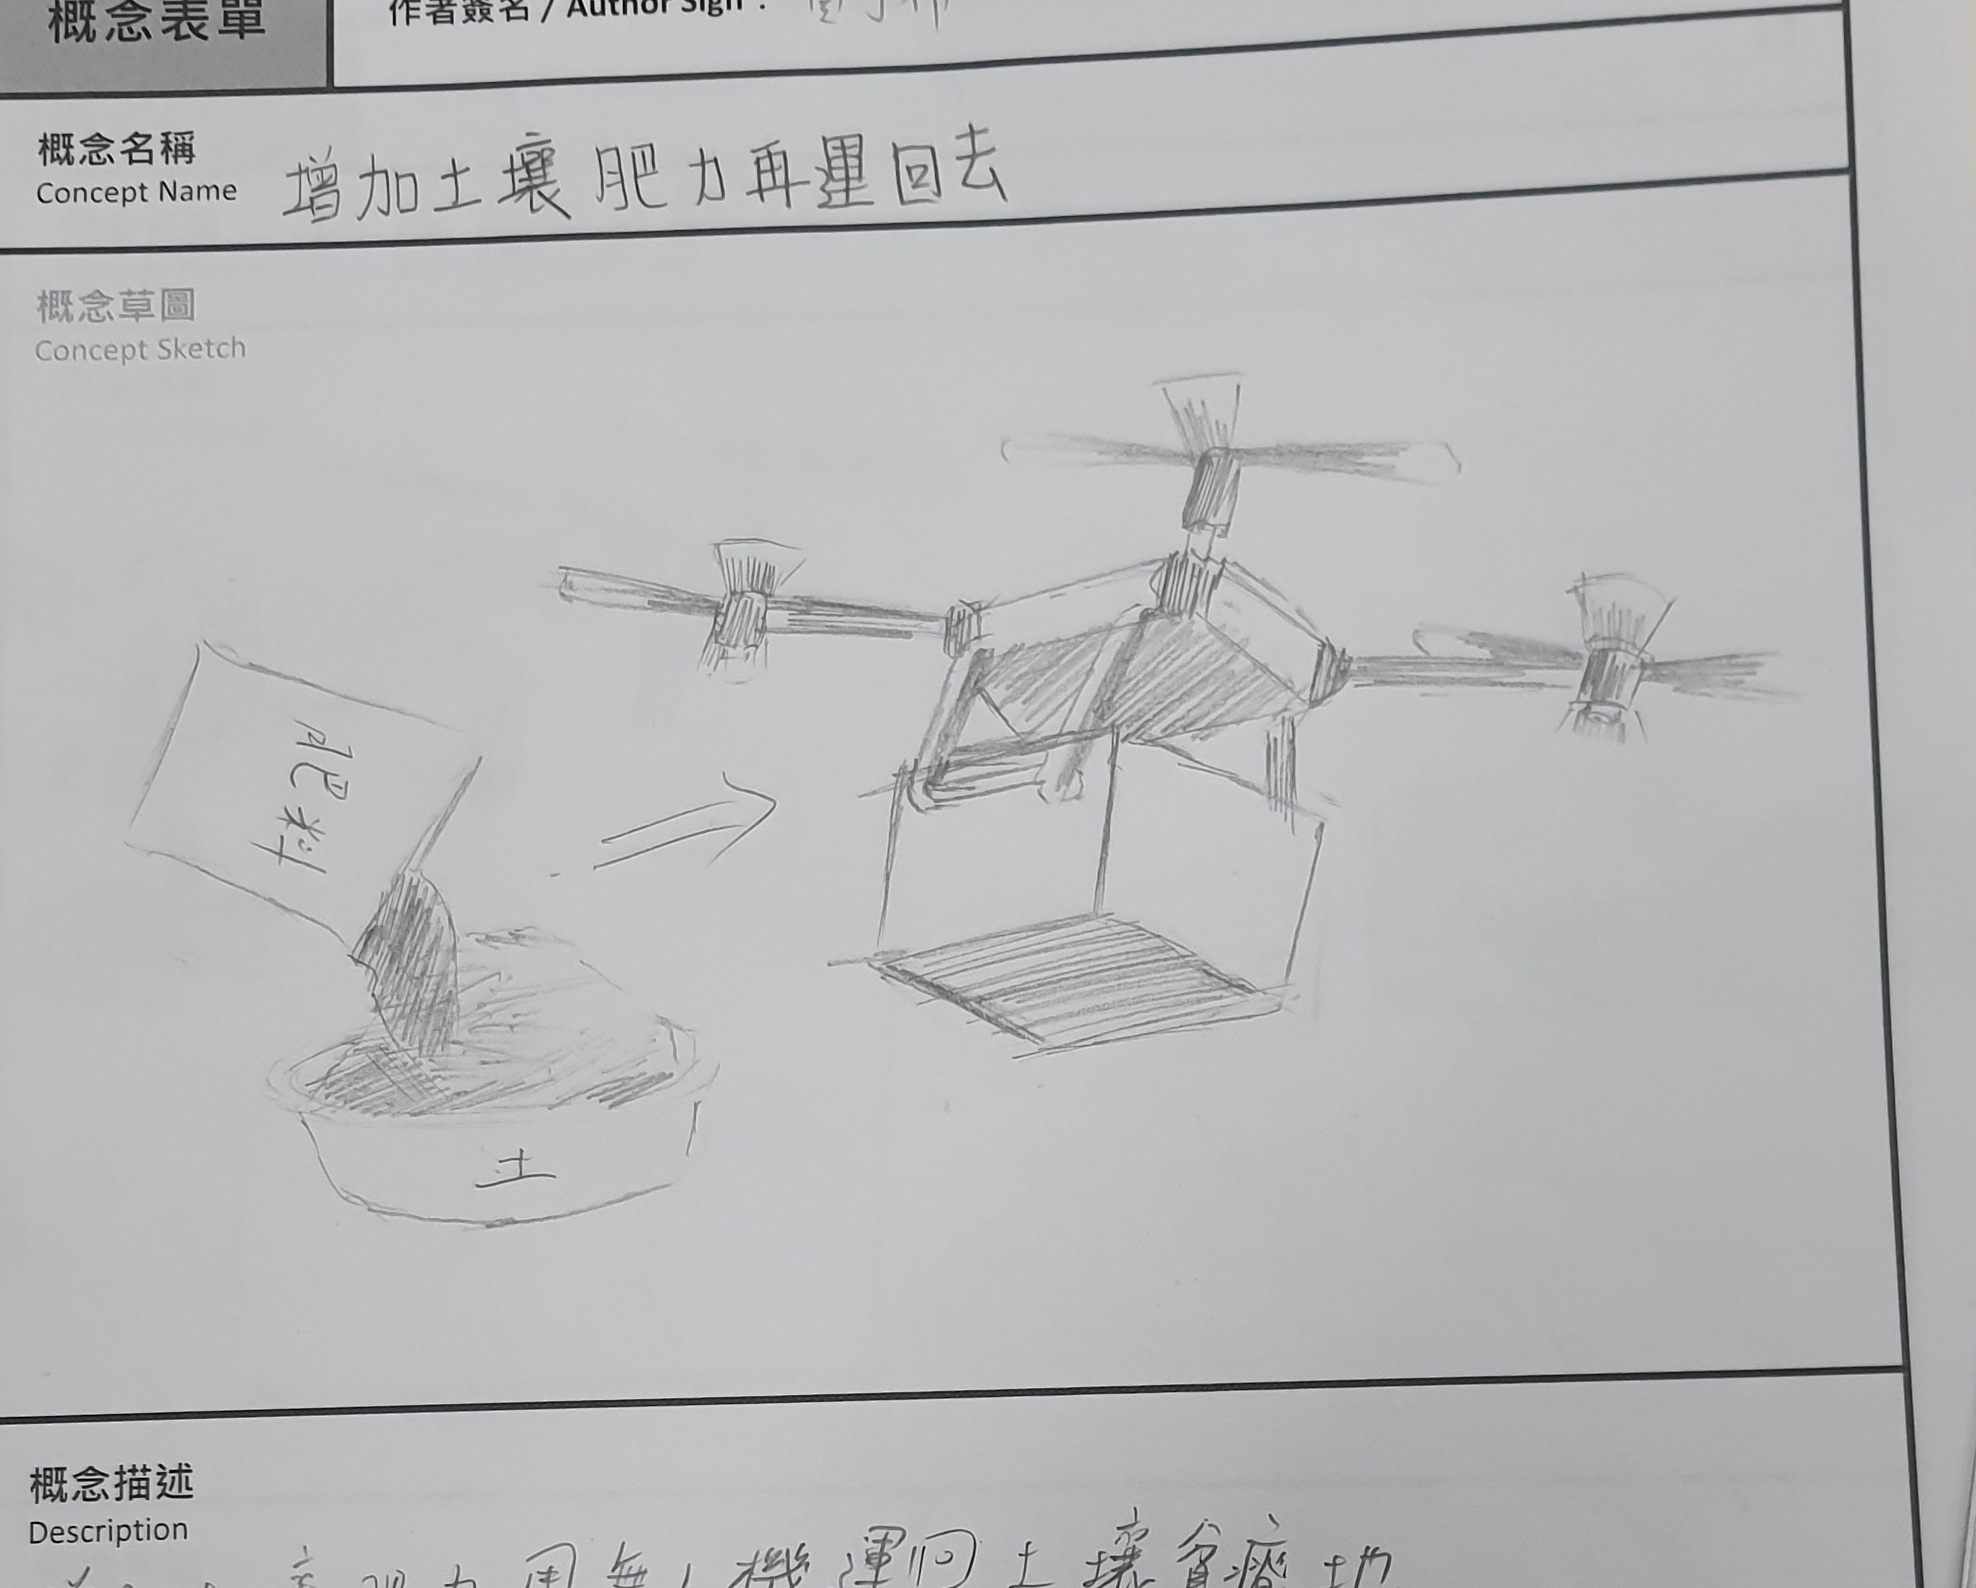 概念表單
作者簽名 / Author Sign :
概念名稱
Concept Name
增加土壤肥力再運回去
概念草圖
Concept Sketch
肥料
土
概念描述
Description
力用無人機運回土壤貧瘠地